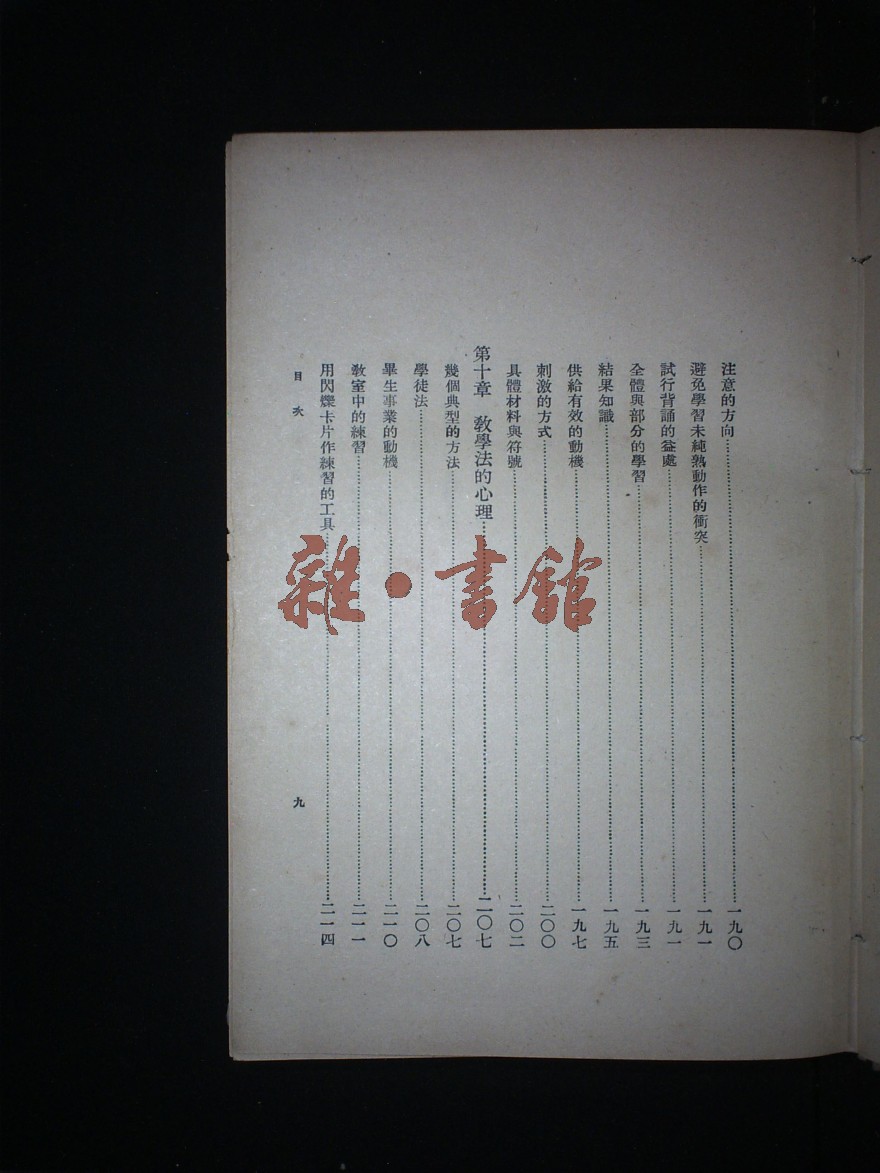 注意的方向一九〇
避免學習未純熟動作的衝突一九一
試行背誦的益處一九一
全體與部分的學習一九三
結果知識一九五
供給有效的動機一九七
刺激的方式二〇〇
具體材料與符號二〇二
第十章 教學法的心理二〇七
幾個典型的方法二〇七
學徒法二〇八
畢生事業的動機二一〇
教室中的練習二一一
用閃爍卡片作練習的工具二一四
目次
九
雜·書館